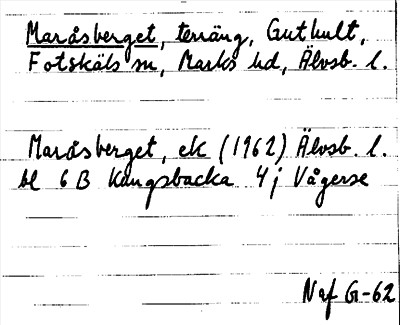 Maråsberget, terräng, Guthult,
Fotskäls sn, Marks hd, Älvsb. l.
Maråsberget, ek (1962) Älvsb. l.
bl 6 B Kungsbacka 4j Vågerse
Naf G-62